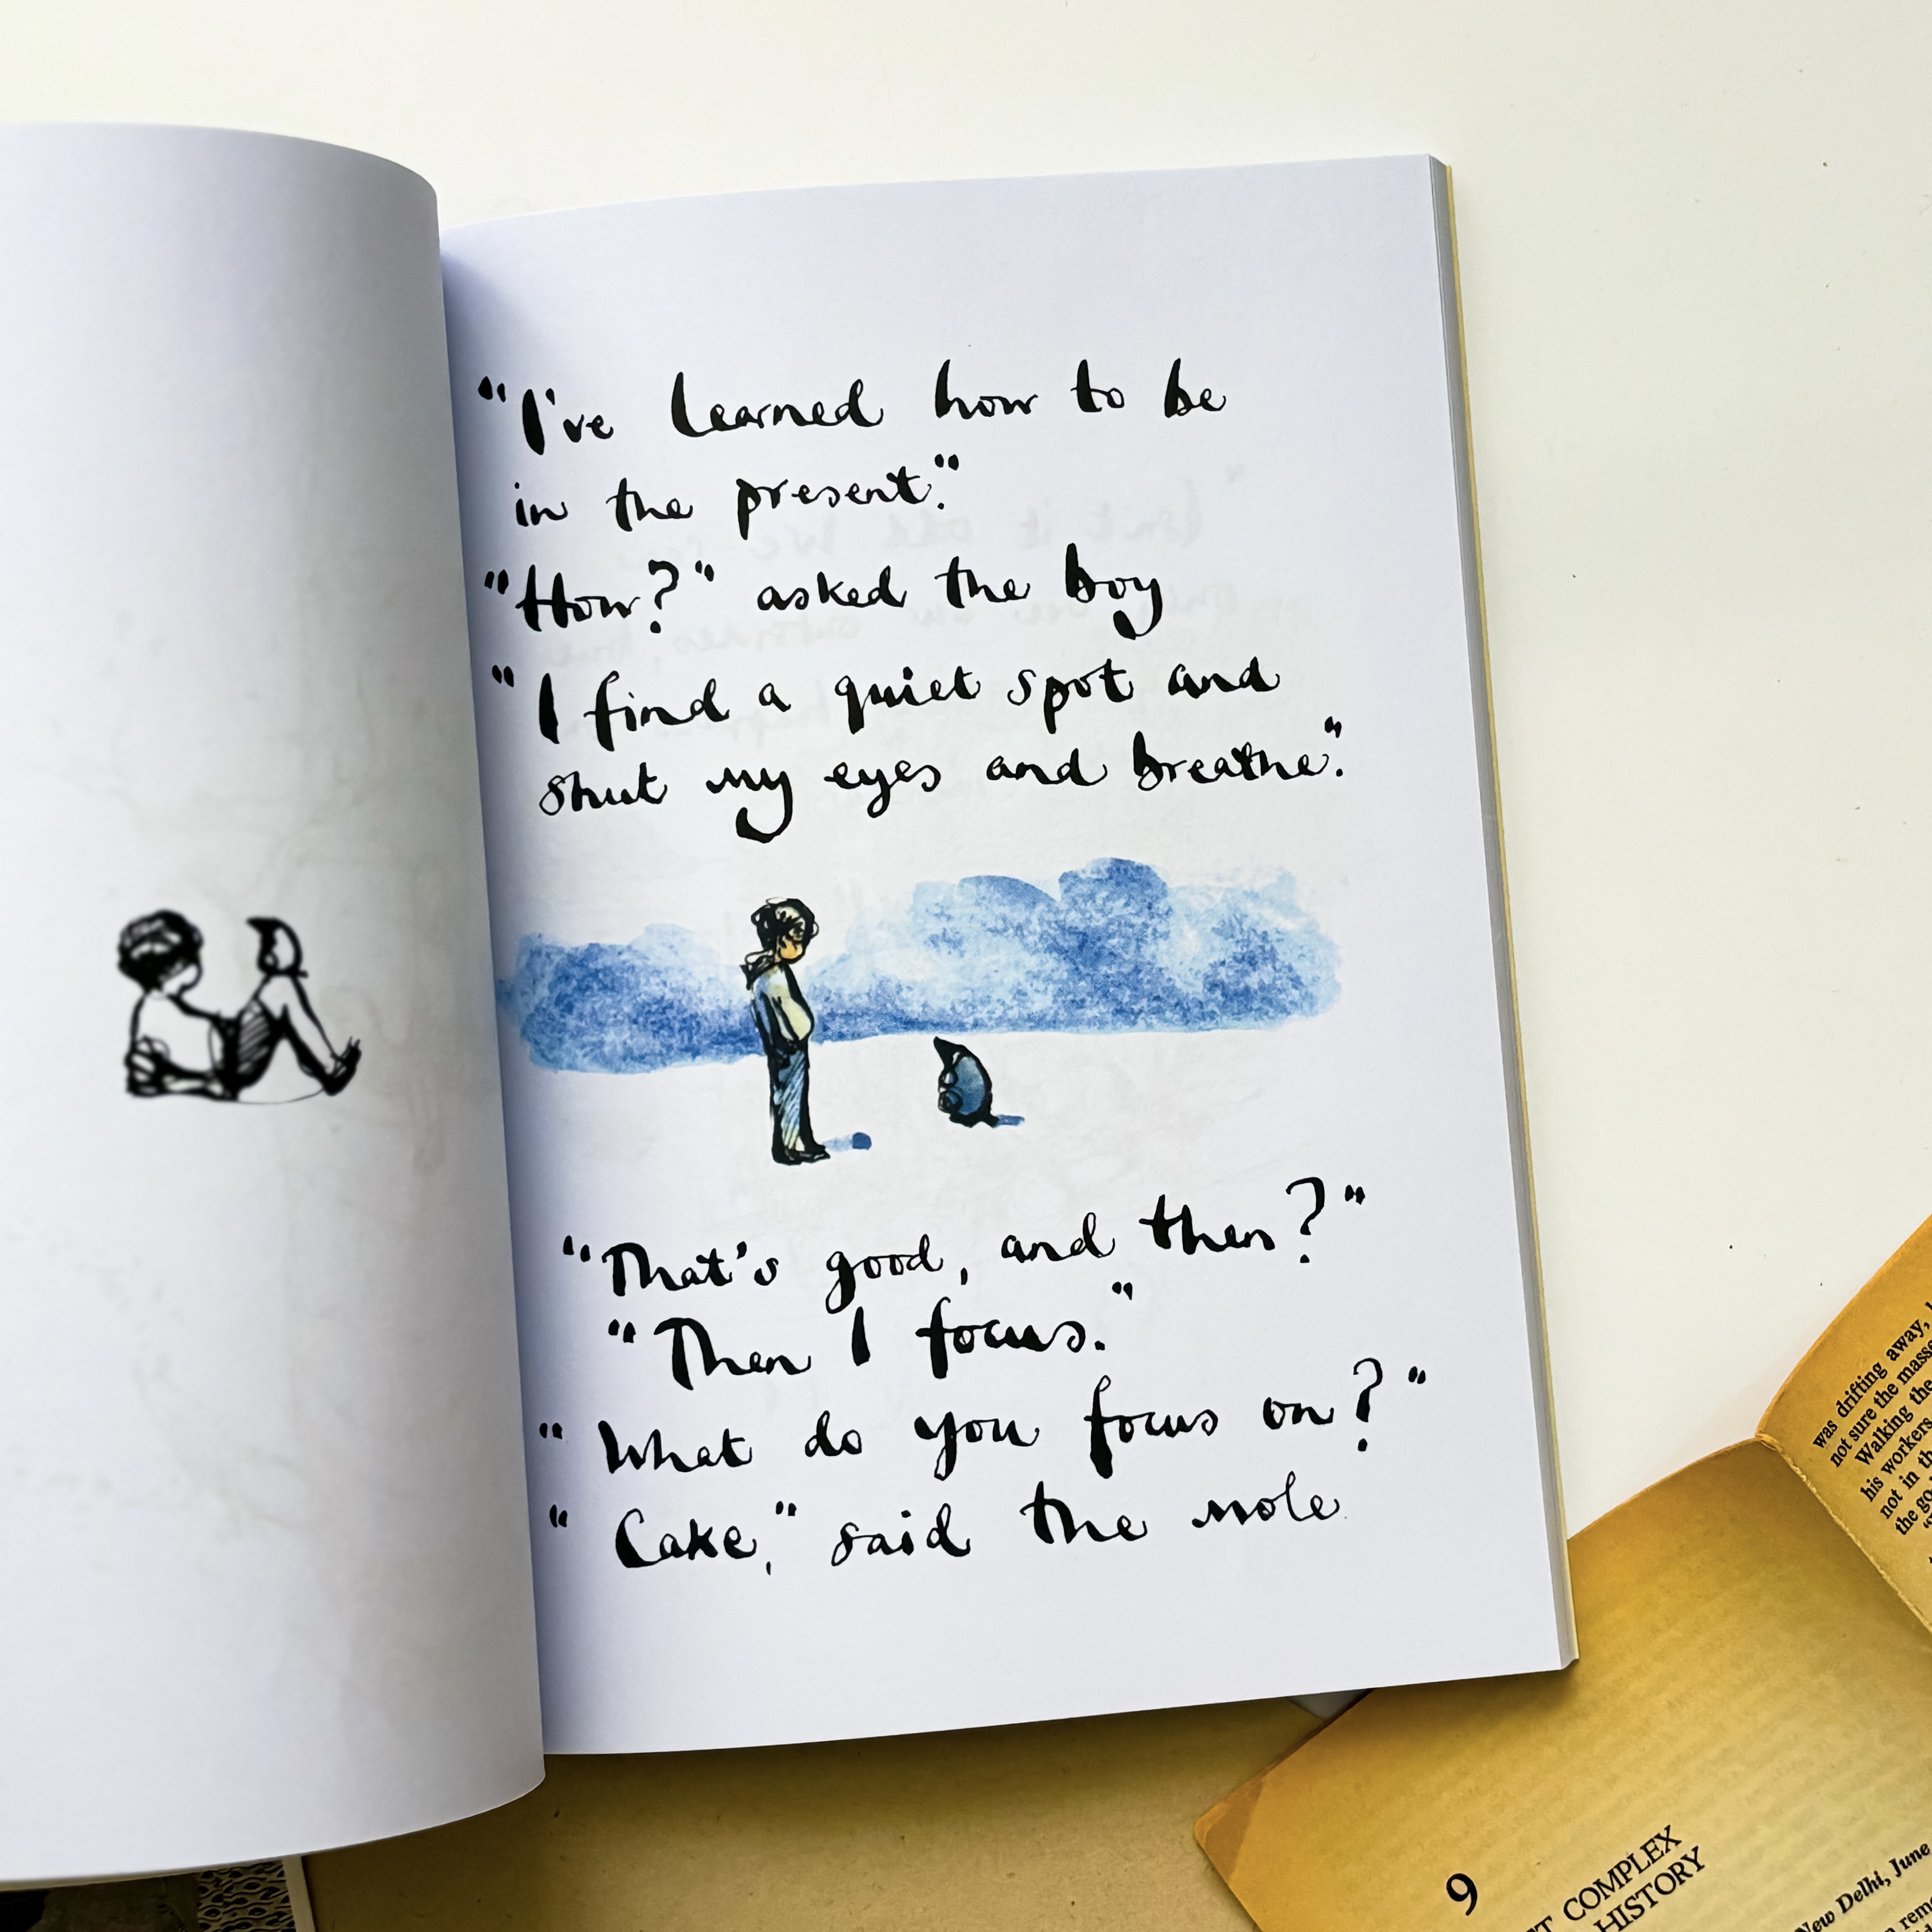 "I've learned how to be
in the present."
"How?" asked the boy
"I find a quiet spot and
shut my eyes and breathe."
"That's good, and then?"
"Then I focus."
"What do you focus on?"
"Cake," said the mole.
was drifting away,
not sure the masse
Walking the
his workers
not in th
the go
9
T COMPLEX
HISTORY
New Delhi, June